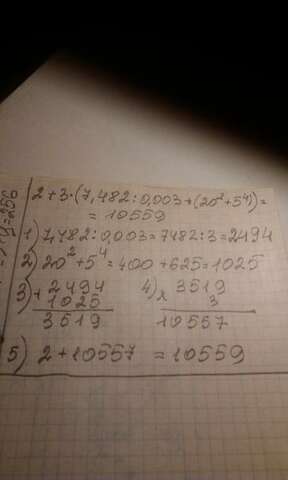 2+3·(7,482:0,003+(20²+5⁴))=
= 10559
1) 7,482:0,003=7482:3=2494
2) 20²+5⁴=400+625=1025
3) +2494 4) × 3519
1025 3
3519 10557
5) 2+10557 = 10559
y=256